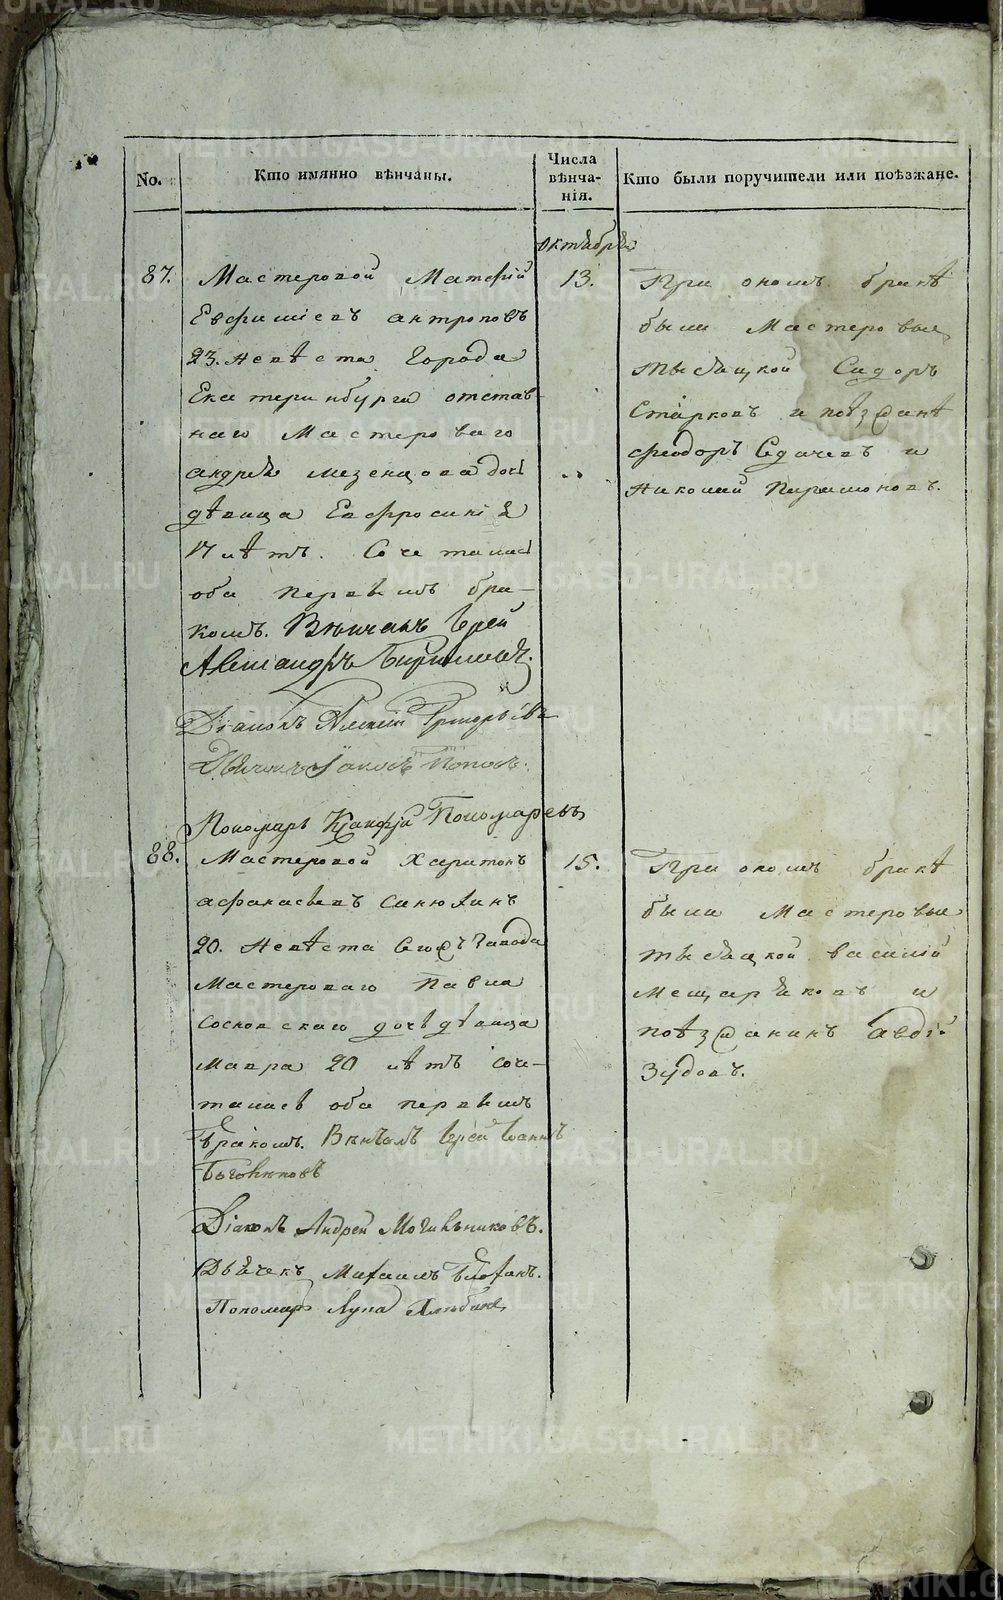 No.
Кто имянно вѣнчаны.
Числа вѣнча-
нія.
Кто были поручители или поѣзжане.
октября
87.
Мастеровой Матфій
Евфиміевъ антроповъ
23. невѣста Города
Екатеринбурга отстав-
наго Мастероваго
андрея мезенцова дочь
дѣвица Евфросинія
17 лѣтъ. Сочетались
оба первымъ бра-
комъ. Вѣнчалъ Іерей
Александръ
Діаконъ Алексій Григорьевъ
Дьячокъ Іаковъ Поповъ.
Пономарь Пономаревъ
13.
При ономъ бракѣ
были Мастеровые
тысяцкой Сидоръ
Старковъ и поѣзжанѣ
феодоръ Сдачевъ и
Николай Парамоновъ.
88.
Мастеровой Харитонъ
афанасьевъ Синюхинъ
20. Невѣста Сегожъ Завода
Мастероваго Павла
Сосновскаго дочь дѣвица
Мавра 20 лѣтъ соче-
тались оба первымъ
бракомъ. Вѣнчалъ Іерей Іоаннъ
Діаконъ Андрей Мочильниковъ.
Дьячекъ Михаилъ
Пономарь Лупа
15.
При ономъ бракѣ
были Мастеровые
тысяцкой василій
мещаряковъ и
поѣзжанинъ авдѣй
Зудовъ.
METRIKI.GASO-URAL.RU